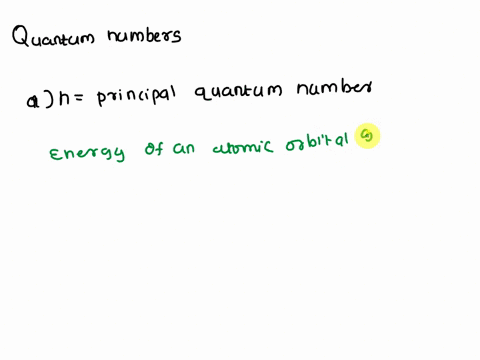 Quantum numbers
a) n = principal quantum number
Energy of an atomic orbital